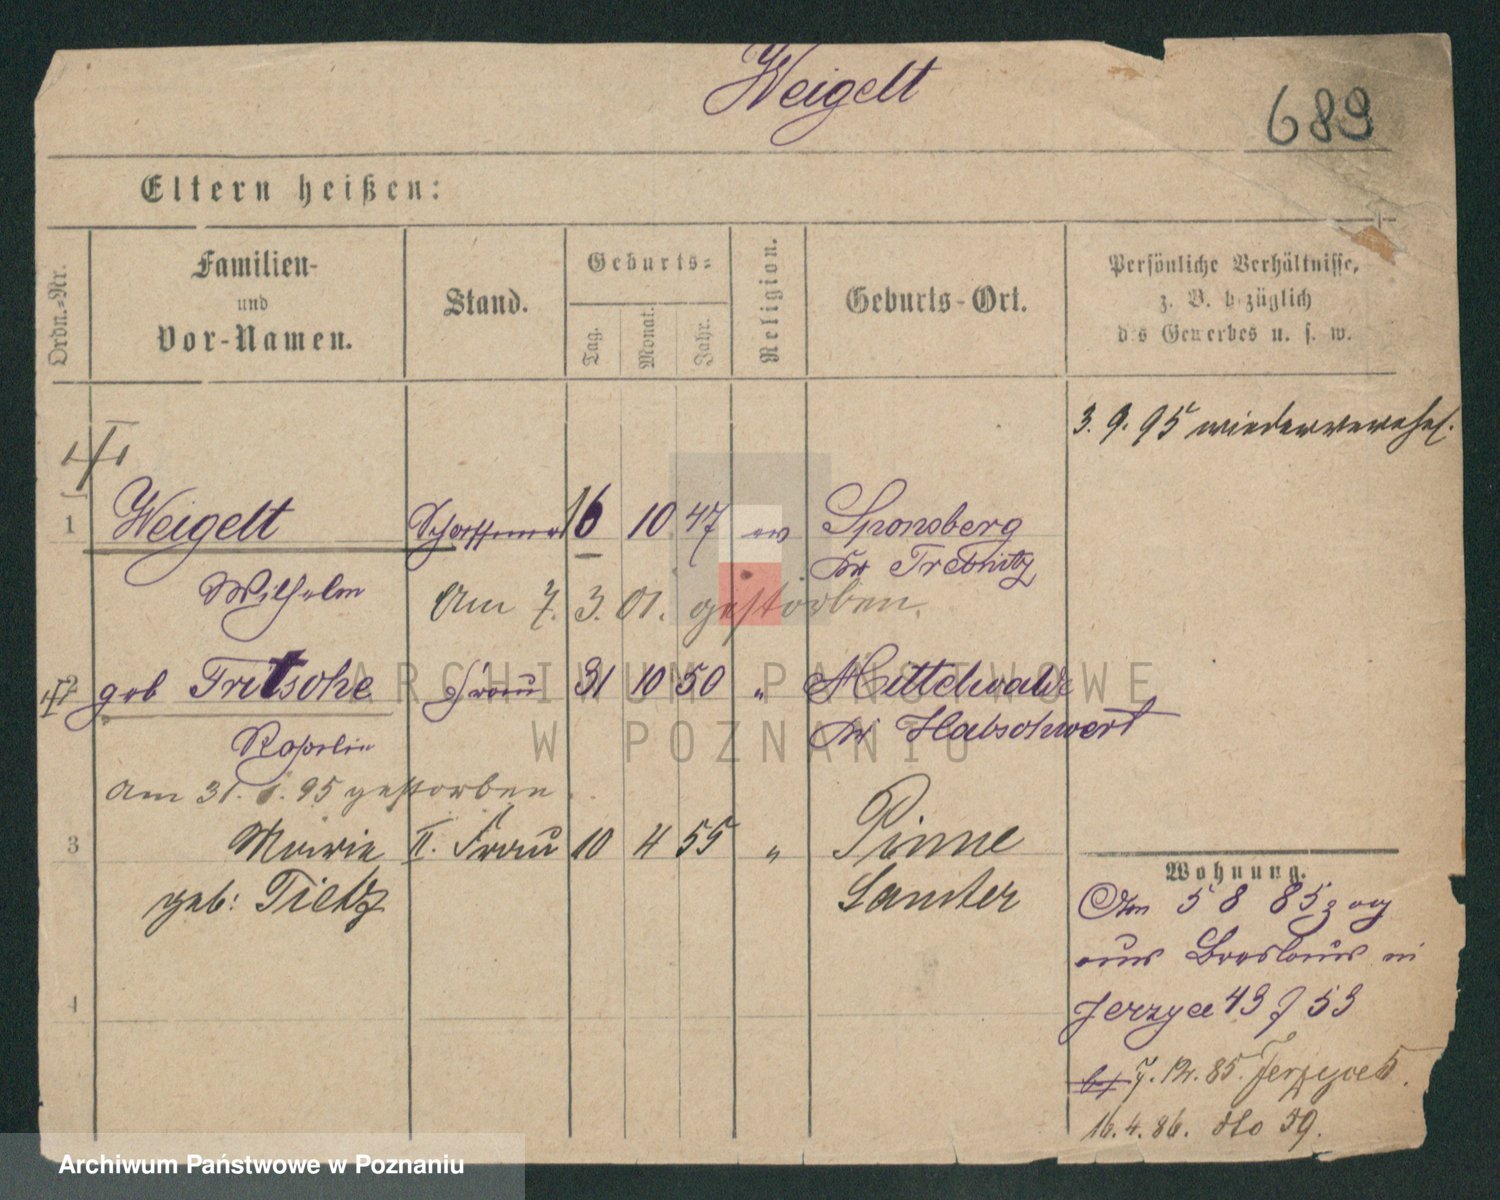 Weigelt
689
Eltern heißen:
Ordn.-Nr.
Familien-
und
Vor-Namen.
Stand.
Geburts-
Tag.
Monat.
Jahr.
Religion.
Geburts-Ort.
Persönliche Verhältnisse,
z. B. bezüglich
des Gewerbes u. s. w.
3. 9. 95 wiederverehel.
1 Weigelt Schaffner 16 10 47 ev Sponsberg
Wilhelm Kr Trebnitz
Am 7. 3. 01. gestorben.
2 geb Fritsche Frau 31 10 50 " Mittelwalde
Kr Habschwert
Am 31. 95 gestorben.
3 Marie II. Frau 10 4 55 " Pinne
geb: Tietz Samter
4
Wohnung.
Am 5 8 85 zog
aus Breslau in
Jerzyce 43 f 53
7. 12. 85. Jerzyce 5.
16. 4. 86. dto 59.
ARCHIWUM PAŃSTWOWE
W POZNANIU
Archiwum Państwowe w Poznaniu